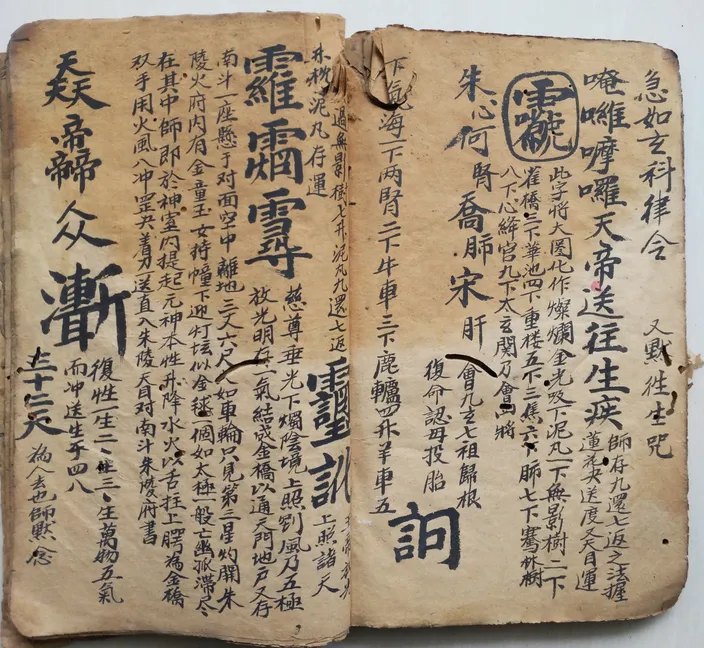 急如玄科律令 又默往生咒
唵囉嚤囉天帝送往生疾
師存九還七返之法握
蓮花尖送度又天目運
此字將大圈化作燦爛金光吸下泥丸一下無影樹二下
雀橋三下華池四下重楼五下三焦六下肺七下騫林樹
八下心絳宮九下太玄関乃會四將
朱心何腎喬肺宋肝
會九玄七祖歸根
復命認母投胎
訶
下氣海一下两腎二下牛車三下鹿轤四升羊車五
過無影樹七升泥丸九還七返
林枕泥丸存運
上照諸天
慈尊垂光下燭陰境上照刹風乃五極
放光明存一氣結成金橋以通天門地户又存
南斗一座懸于对面空中離地三丈六尺大如車輪只見第三星灼開朱
陵火府内有金童玉女持幢下迎灯坛似金毬一個如太極一般亡幽孤滞尽
在其中師即於神室内提起元神本性升降水火以舌拄上腭為金橋
双手用火風八冲罡尖着力送直入朱陵天目对南斗朱陵府書
復性一生二、生三、生萬物五氣
而冲送生子四八
三十二天
為人去也師默念